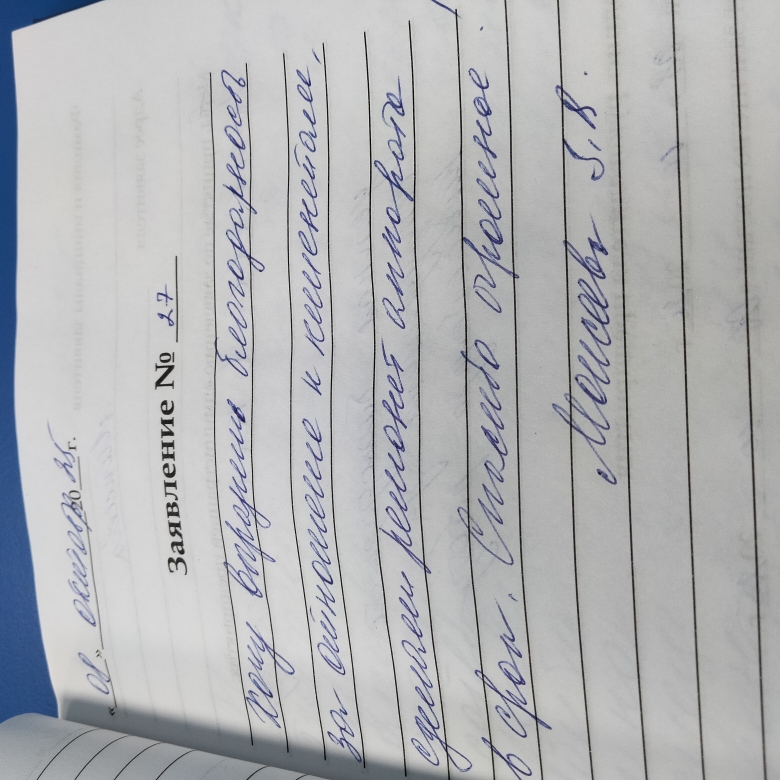 « 01 » октября 2025 г.
Заявление № 27
Хочу выразить благодарность
за отношение к клиентам,
сделали ремонт аппарата
в срок. Спасибо огромное.
Моисеева